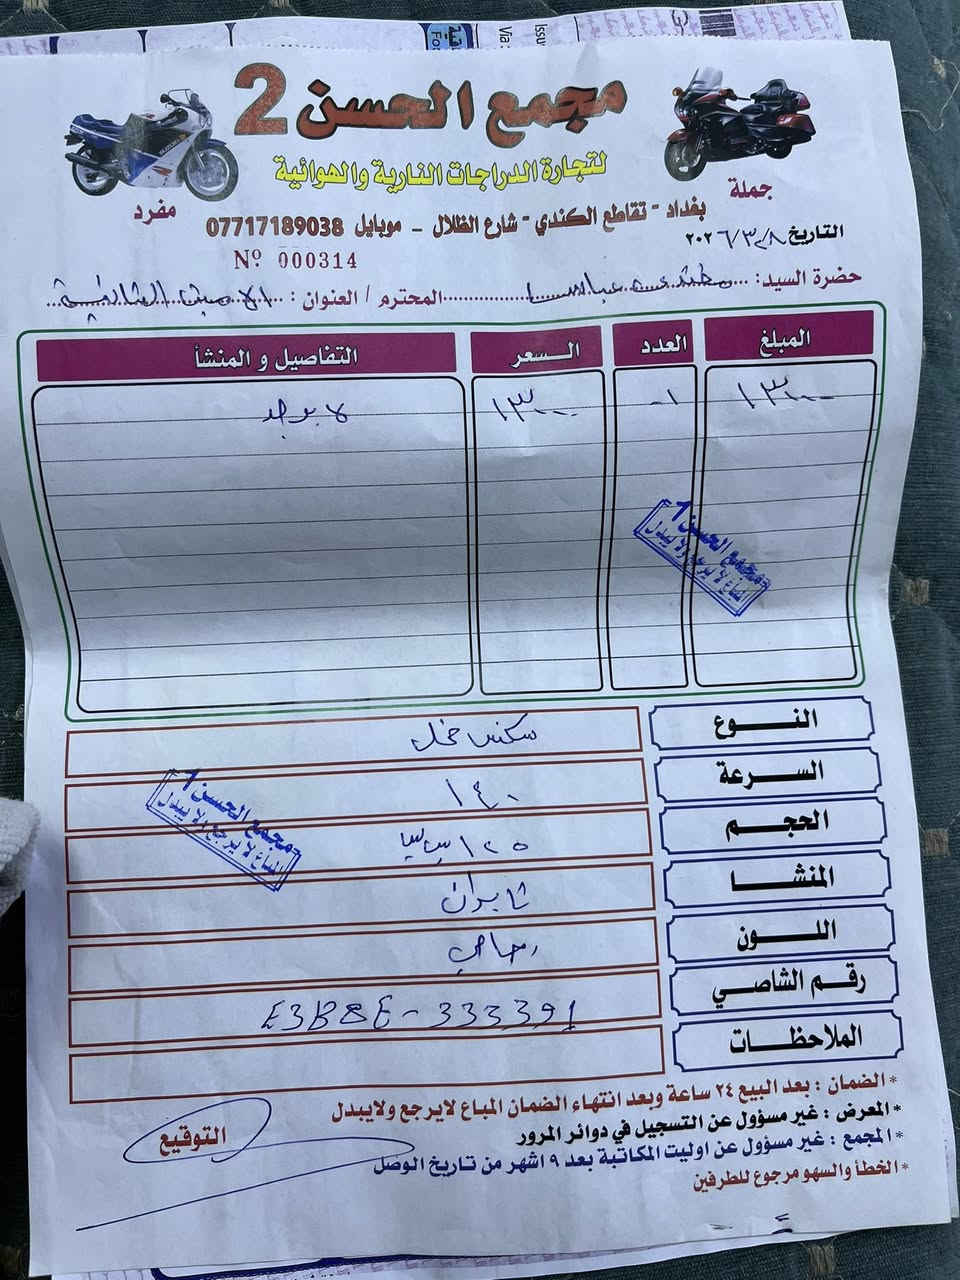 مجمع الحسن 2
لتجارة الدراجات النارية والهوائية
جملة
مفرد
بغداد - تقاطع الكندي - شارع الظلال - موبايل 07717189038
التاريخ ٢٠٢٦/٣/٨
Nº 000314
حضرة السيد: المحترم / العنوان:
المبلغ العدد السعر التفاصيل و المنشأ
١٣٠٠٠٠٠ ٠١ ١٣٠٠٠٠٠ لا يوجد
مجمع الحسن
المباع لا يرجع ولا يبدل
النوع
السرعة ١٤٠
الحجم ١٢٥ سي سي
المنشا تايوان
اللون رصاصي
رقم الشاصي E3B8E-333391
الملاحظات
مجمع الحسن
المباع لا يرجع ولا يبدل
* الضمان : بعد البيع ٢٤ ساعة وبعد انتهاء الضمان المباع لايرجع ولايبدل
* المعرض : غير مسؤول عن التسجيل في دوائر المرور
* المجمع : غير مسؤول عن اوليت المكاتبة بعد ٩ اشهر من تاريخ الوصل
* الخطأ والسهو مرجوع للطرفين
التوقيع